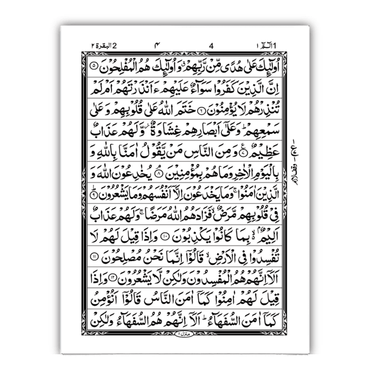 الٓمّٓ ١ 4 ۴ 2 البقرة ٢
اُولٰٓئِكَ عَلٰى هُدًى مِّنْ رَّبِّهِمْ ۗ وَاُولٰٓئِكَ هُمُ الْمُفْلِحُوْنَ ۝٥
اِنَّ الَّذِيْنَ كَفَرُوْا سَوَآءٌ عَلَيْهِمْ ءَاَنْذَرْتَهُمْ اَمْ لَمْ
تُنْذِرْهُمْ لَا يُؤْمِنُوْنَ ۝٦ خَتَمَ اللّٰهُ عَلٰى قُلُوْبِهِمْ وَعَلٰى
سَمْعِهِمْ ؕ وَعَلٰٓى اَبْصَارِهِمْ غِشَاوَةٌ ؗ وَّلَهُمْ عَذَابٌ
عَظِيْمٌ ۝٧ وَمِنَ النَّاسِ مَنْ يَّقُوْلُ اٰمَنَّا بِاللّٰهِ وَ
بِالْيَوْمِ الْاٰخِرِ وَمَا هُمْ بِمُؤْمِنِيْنَ ۝٨ يُخٰدِعُوْنَ اللّٰهَ وَ
الَّذِيْنَ اٰمَنُوْا ۚ وَمَا يَخْدَعُوْنَ اِلَّآ اَنْفُسَهُمْ وَمَا يَشْعُرُوْنَ ۝٩
فِيْ قُلُوْبِهِمْ مَّرَضٌ ۙ فَزَادَهُمُ اللّٰهُ مَرَضًا ۚ وَلَهُمْ عَذَابٌ
اَلِيْمٌۢ ۙ بِمَا كَانُوْا يَكْذِبُوْنَ ۝١٠ وَاِذَا قِيْلَ لَهُمْ لَا
تُفْسِدُوْا فِى الْاَرْضِ ۙ قَالُوْٓا اِنَّمَا نَحْنُ مُصْلِحُوْنَ ۝١١
اَلَآ اِنَّهُمْ هُمُ الْمُفْسِدُوْنَ وَلٰكِنْ لَّا يَشْعُرُوْنَ ۝١٢ وَاِذَا
قِيْلَ لَهُمْ اٰمِنُوْا كَمَآ اٰمَنَ النَّاسُ قَالُوْٓا اَنُؤْمِنُ
كَمَآ اٰمَنَ السُّفَهَآءُ ؕ اَلَآ اِنَّهُمْ هُمُ السُّفَهَآءُ وَلٰكِنْ